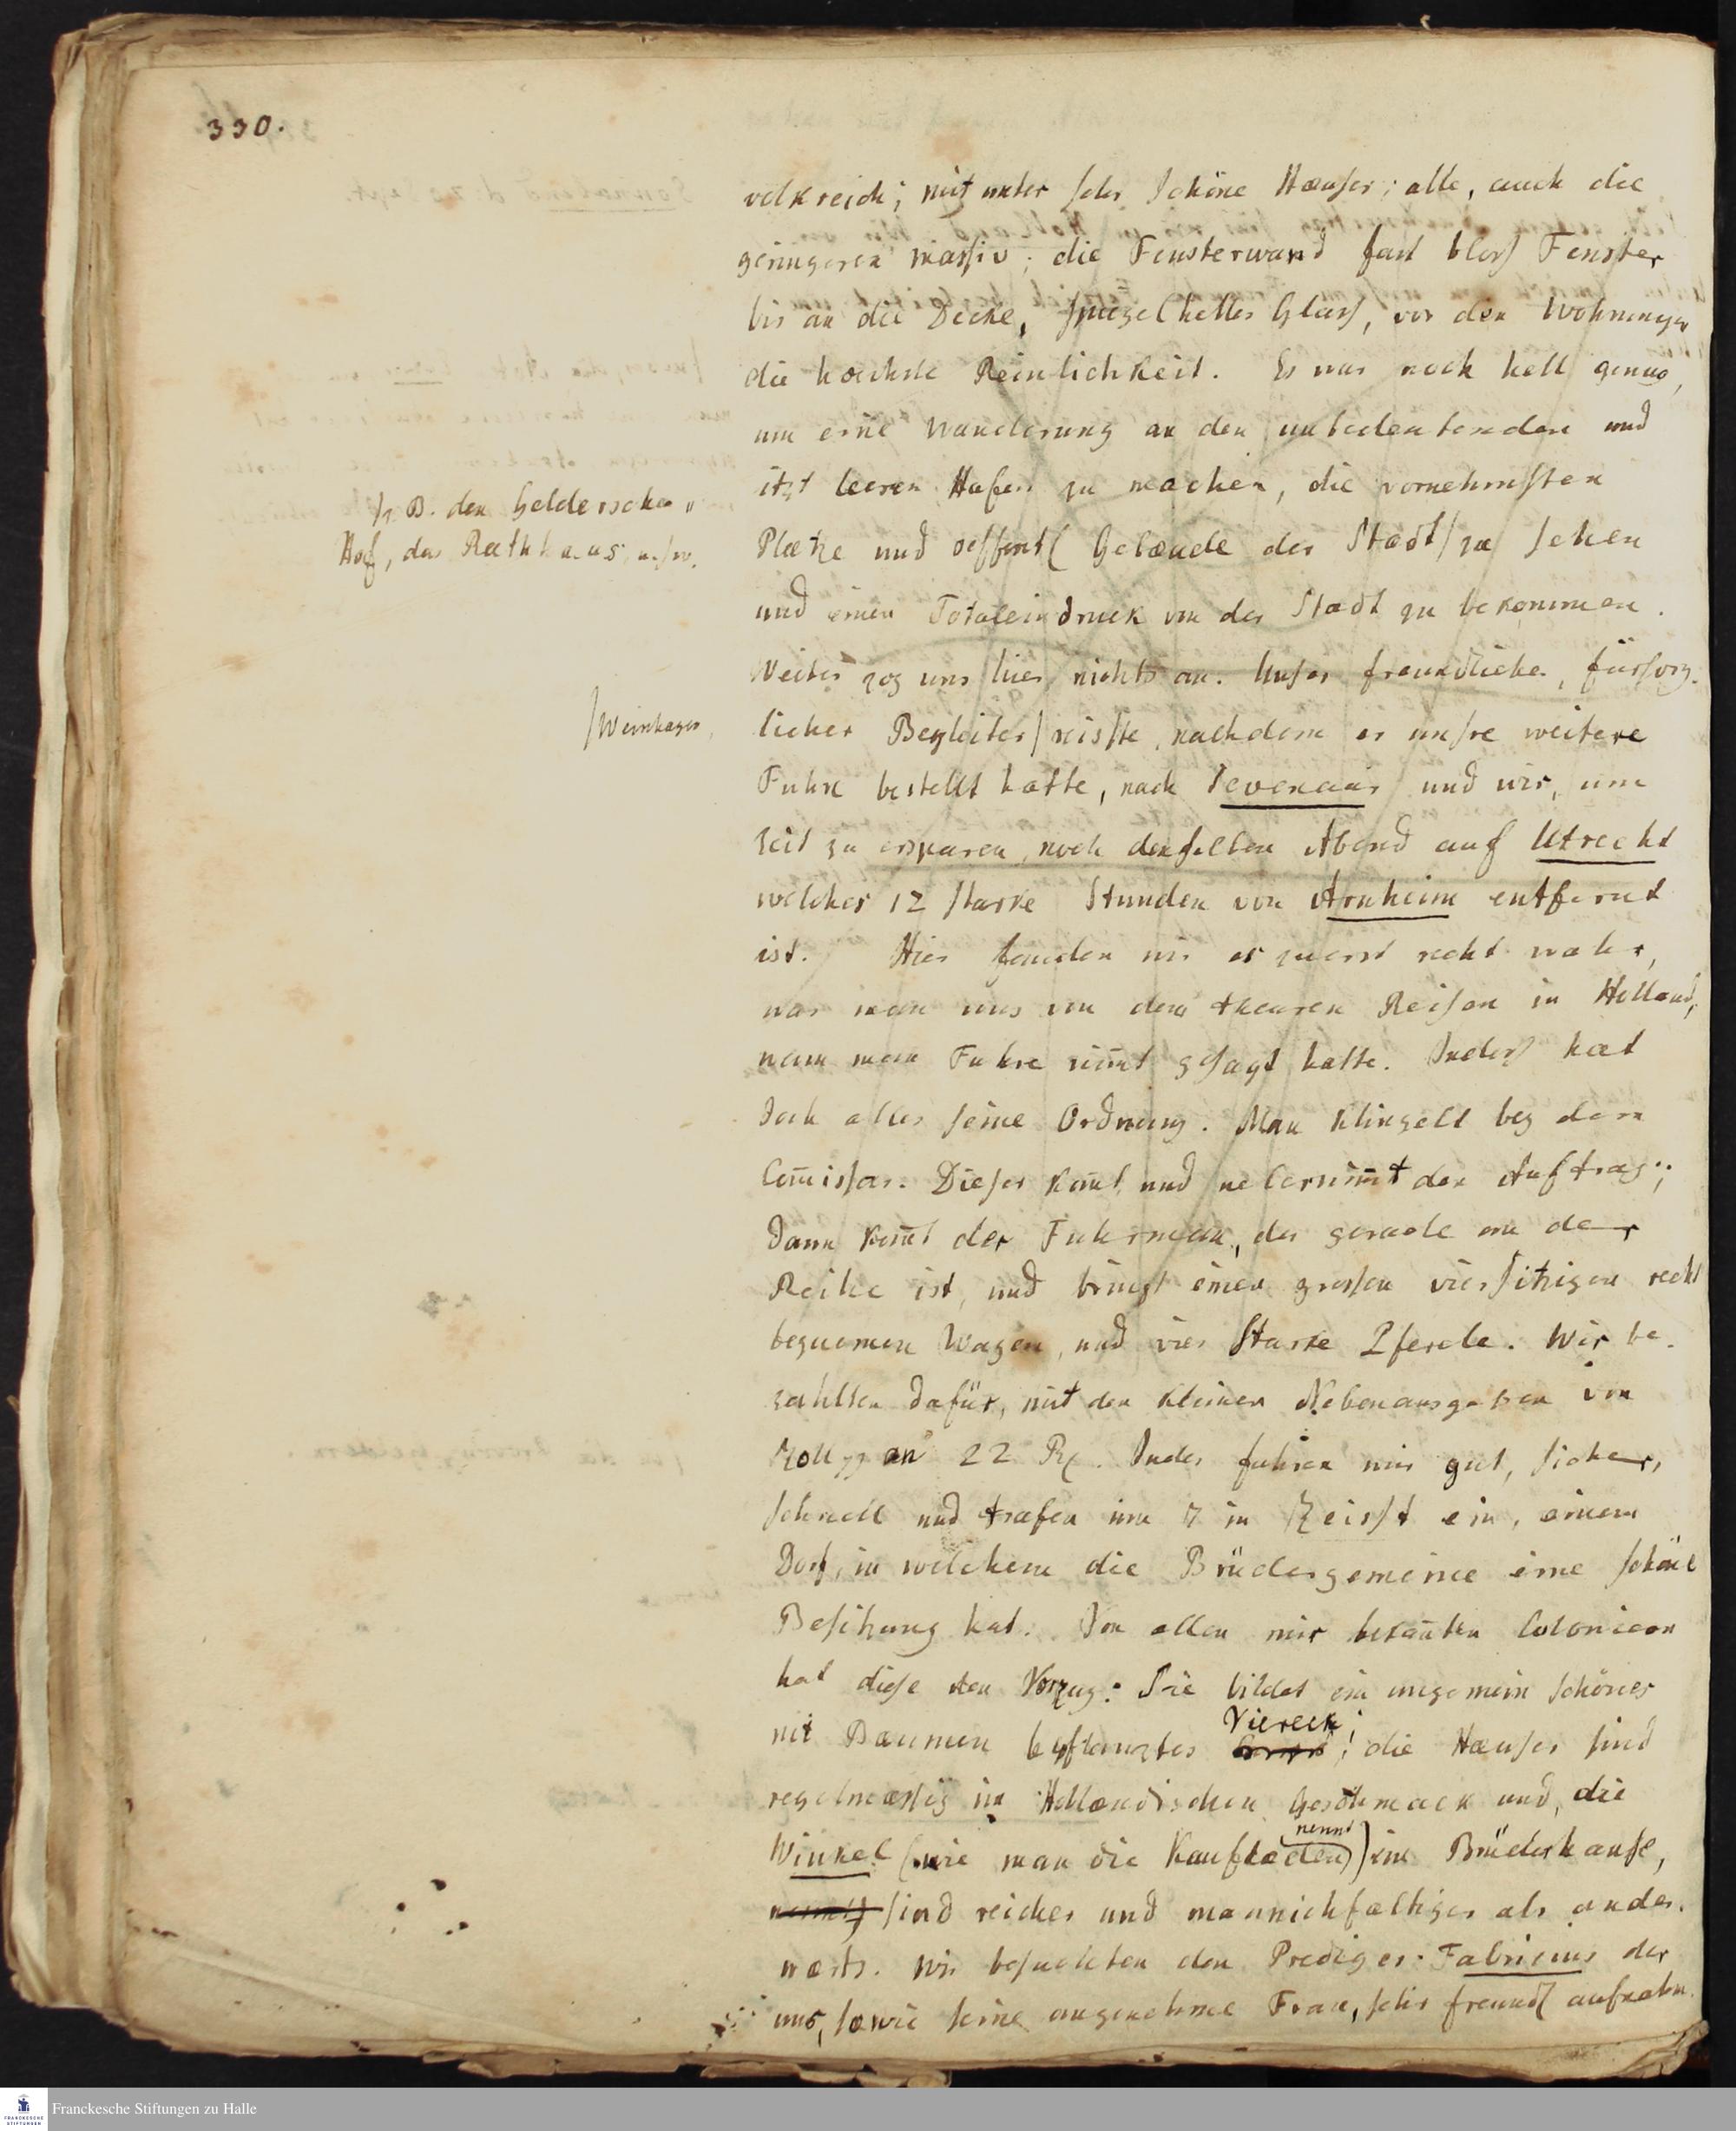 330.
volkreich; mit unter sehr schöne Hæuser; alle, auch die
geringeren massiv; die Fensterwand fast bloss Fenster
bis an die Decke, spiegelhelles Glass, vor den Wohnungen
die hoechste Reinlichkeit. Es war noch hell genug,
um eine Wanderung an den unbedeutenden und
itzt leeren Hafen zu machen, die vornehmsten
Plætze und oeffentl Gebæude der Stadt/ zu sehen
/z. B. den Gelderschen
Hof, das Rathhaus, u.s.w.
und einen Totaleindruck von der Stadt zu bekommen.
Weiter zog uns hier nichts an. Unser freundlicher, fürsorg-
licher Begleiter/ reisste, nachdem er unsre weitere
/Weinhagen,
Fuhre bestellt hatte, nach Sevenaar und wir, um
Zeit zu ersparen, noch denselben Abend auf Utrecht
welches 12 starke Stunden von Arnheim entfernt
ist. Hier fanden wir es zuerst recht wahr,
was man uns von dem theuren Reisen in Holland,
wenn man Fuhre nim̄t gesagt hatte. Indess hat
doch alles seine Ordnung. Man klingelt bey dem
Com̄issar. Dieser kom̄t und uebernim̄t den Auftrag;
dann kom̄t der Fuhrmann, der gerade an der
Reihe ist, und bringt einen grossen viersitzigen recht
bequemen Wagen, und vier starke Pferde. Wir be-
zahlten dafür, mit den kleinen Nebenausgaben von
Zoll pp an 22 Rl. Indes fuhren wir gut, sicher,
schnell und trafen um 7 in Zeisst ein, einem
Dorf, in welchem die Brüdergemeine eine schöne
Besitzung hat. Von allen mir bekan̄ten Colonieen
hat diese den Vorzug: Sie bildet ein ungemein schönes
mit Bæumen bepflanztes Viereck; die Hæuser sind
regelmæssig im Hollændischen Geschmack und, die
Winkel (wie man die Kauflæden nennt) im Brüderhause,
sind reicher und mannichfaltiger als ander-
wærts. Wir besuchten den Prediger Fabricius der
uns, sowie seine angenehme Frau, sehr freundl aufnahm.
Franckesche Stiftungen zu Halle
FRANCKESCHE
STIFTUNGEN